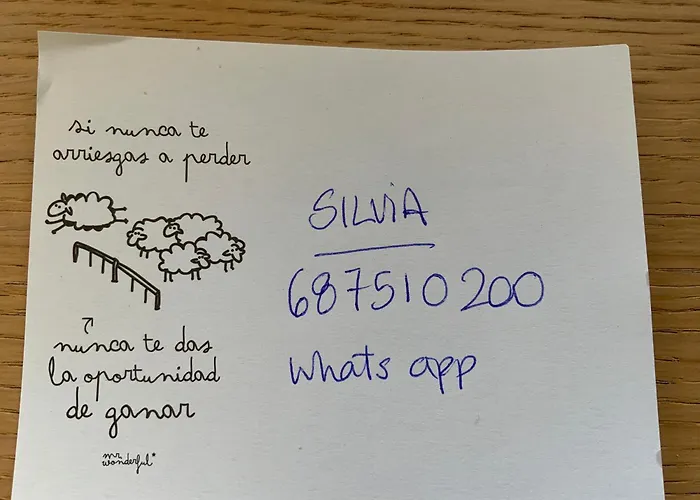 si nunca te
arriesgas a perder
nunca te das
la oportunidad
de ganar
mr
wonderful*
SILViA
687510200
whats app